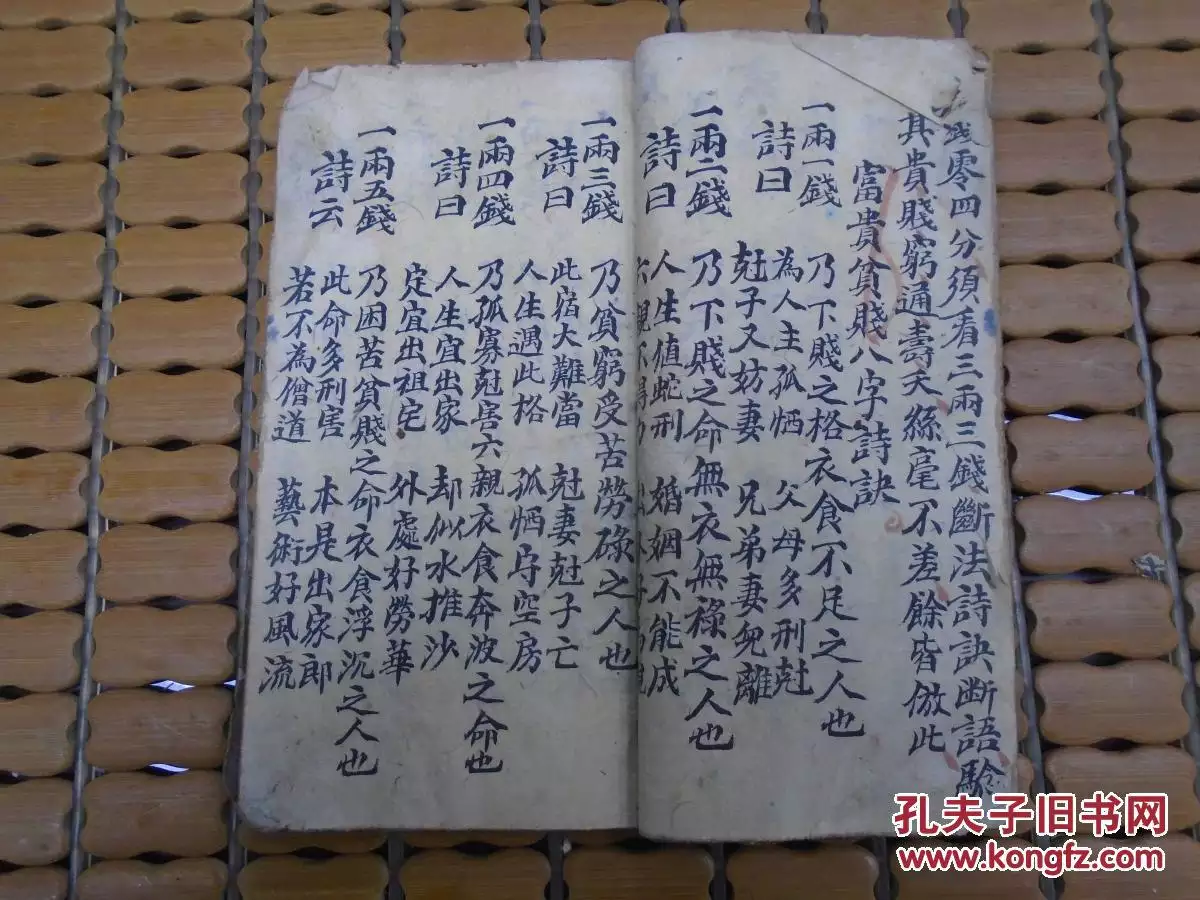 錢零四分須看三兩三錢斷法詩訣断語驗
其貴賤窮通壽夭絲毫不差餘皆倣此
富貴貧賤八字詩訣
一兩一錢 乃下賤之格衣食不足之人也
詩曰 為人主孤恓 父母多刑尅
尅子又妨妻 兄弟妻免離
一兩二錢 乃下賤之命無衣無祿之人也
詩曰 人生值蛇刑 婚姻不能成
一兩三錢 乃貧窮受苦勞碌之人也
詩曰 此宿大難當 尅妻尅子亡
人生遇此格 孤恓守空房
一兩四錢 乃孤寡尅害六親衣食奔波之命也
詩曰 人生宜出家 却似水推沙
定宜出祖宅 外處好勞華
一兩五錢 乃困苦貧賤之命衣食浮沉之人也
詩云 此命多刑害 本是出家郎
若不為僧道 藝術好風流
孔夫子旧书网
www.kongfz.com